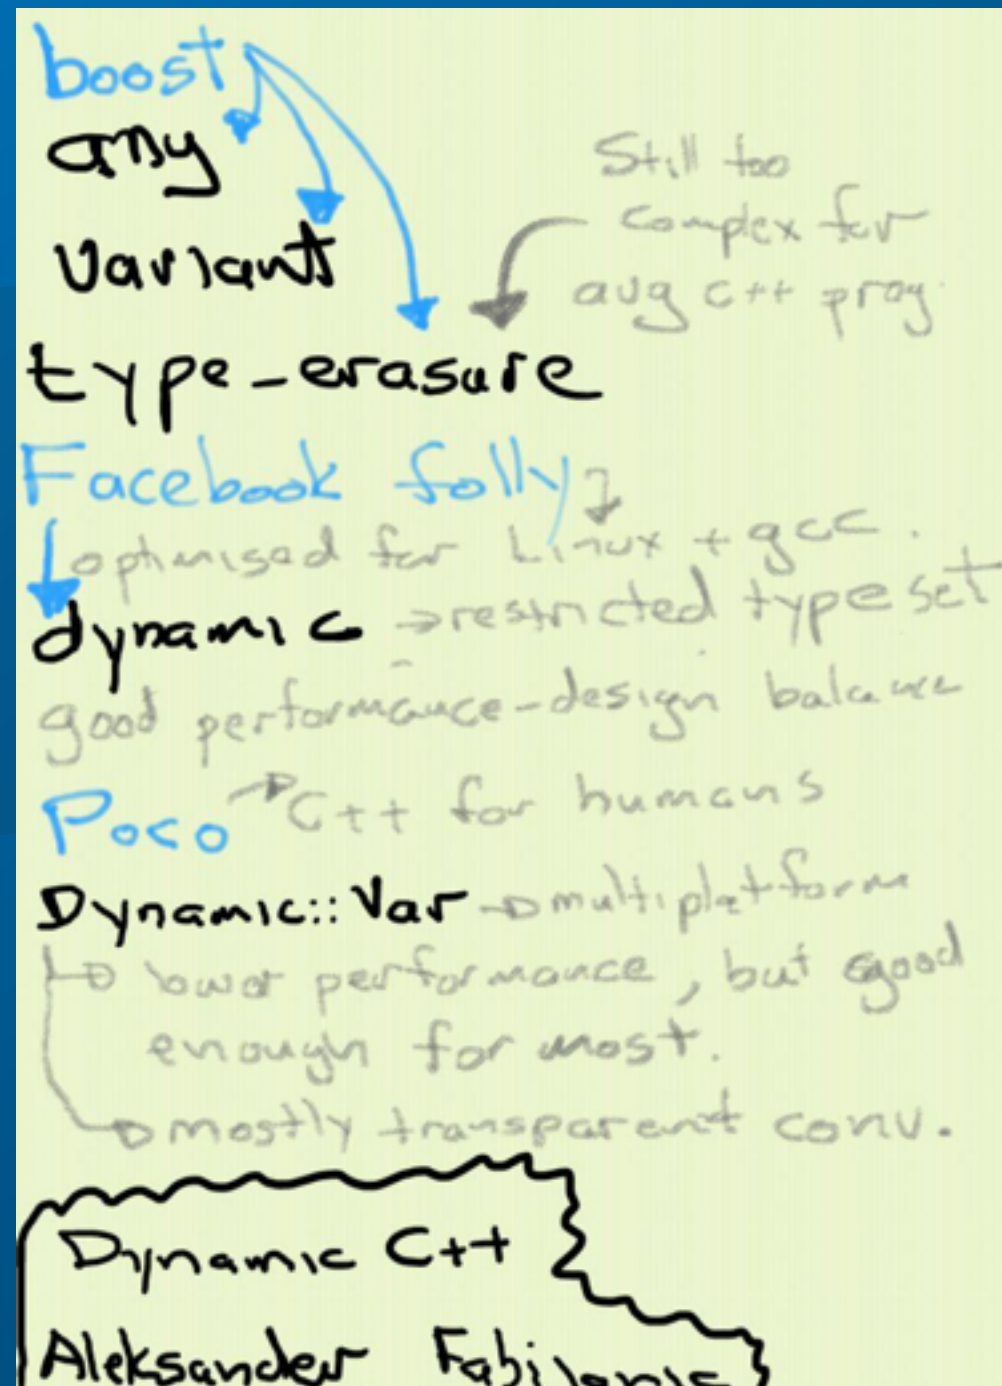 boost
any
variant
Still too
complex for
avg c++ prog.
type-erasure
Facebook folly
optimised for Linux + gcc.
dynamic →restricted type set
good performance-design balance
Poco → C++ for humans
Dynamic::Var → multiplatform
→ lower performance, but good
enough for most.
→ mostly transparent conv.
Dynamic C++
Aleksander